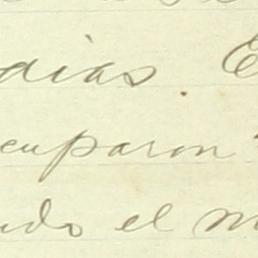 dias. E
cuparon"
ndo el m